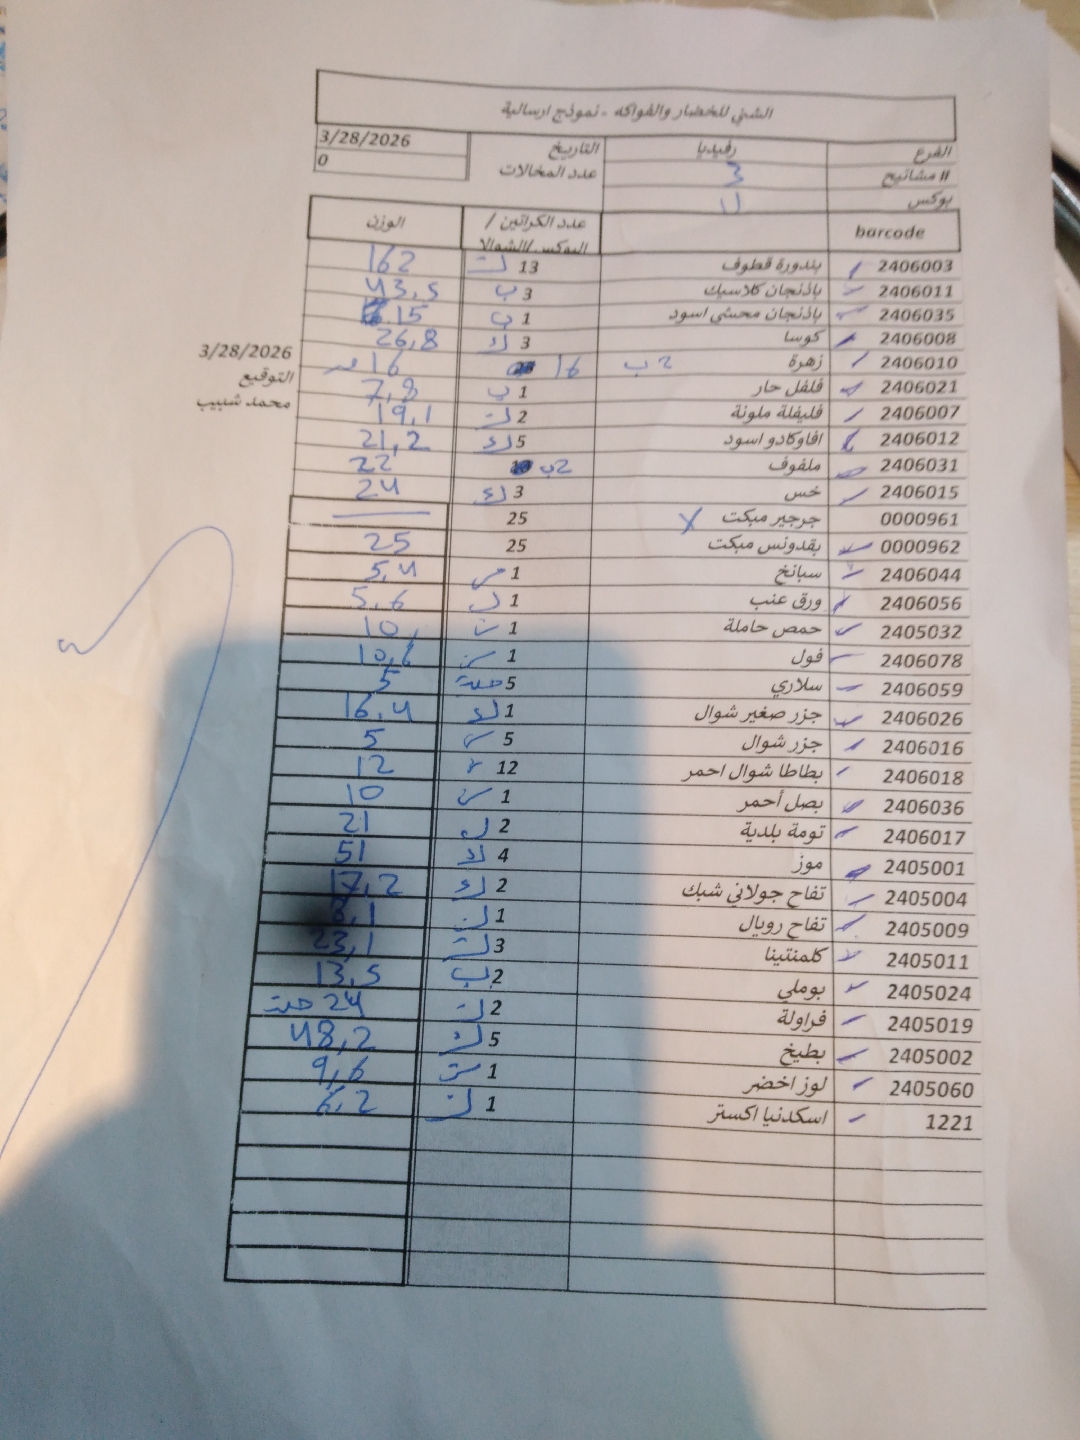 الشني للخضار والفواكه - نموذج ارسالية
الفرع رفيديا التاريخ 3/28/2026
# مشاتيح 3 عدد المخالات 0
بوكس
barcode عدد الكراتين / البوكس/الشوالا الوزن
2406003 بندورة قطوف 13 162
2406011 باذنجان كلاسيك 3 ب 43,5
2406035 باذنجان محشي اسود 1 ب 15
2406008 كوسا 3 26,8
2406010 زهرة 2 ب 16 16
2406021 فلفل حار 1 ب 7,8
2406007 فليفلة ملونة 2 19,1
2406012 افاوكادو اسود 5 21,2
2406031 ملفوف 2 ب 22
2406015 خس 3 24
0000961 جرجير مبكت X 25
0000962 بقدونس مبكت 25 25
2406044 سبانخ 1 5,4
2406056 ورق عنب 1 5,6
2405032 حمص حاملة 1 10
2406078 فول 1 10,6
2406059 سلاري 5 5
2406026 جزر صغير شوال 1 16,4
2406016 جزر شوال 5 5
2406018 بطاطا شوال احمر 12 12
2406036 بصل أحمر 1 10
2406017 تومة بلدية 2 21
2405001 موز 4 51
2405004 تفاح جولاني شبك 2 17,2
2405009 تفاح رويال 1
2405011 كلمنتينا 3 23,1
2405024 بوملي 2 ب 13,5
2405019 فراولة 2 24
2405002 بطيخ 5 48,2
2405060 لوز اخضر 1 9,6
1221 اسكدنيا اكستر 1 6,2
3/28/2026
التوقيع
محمد شبيب